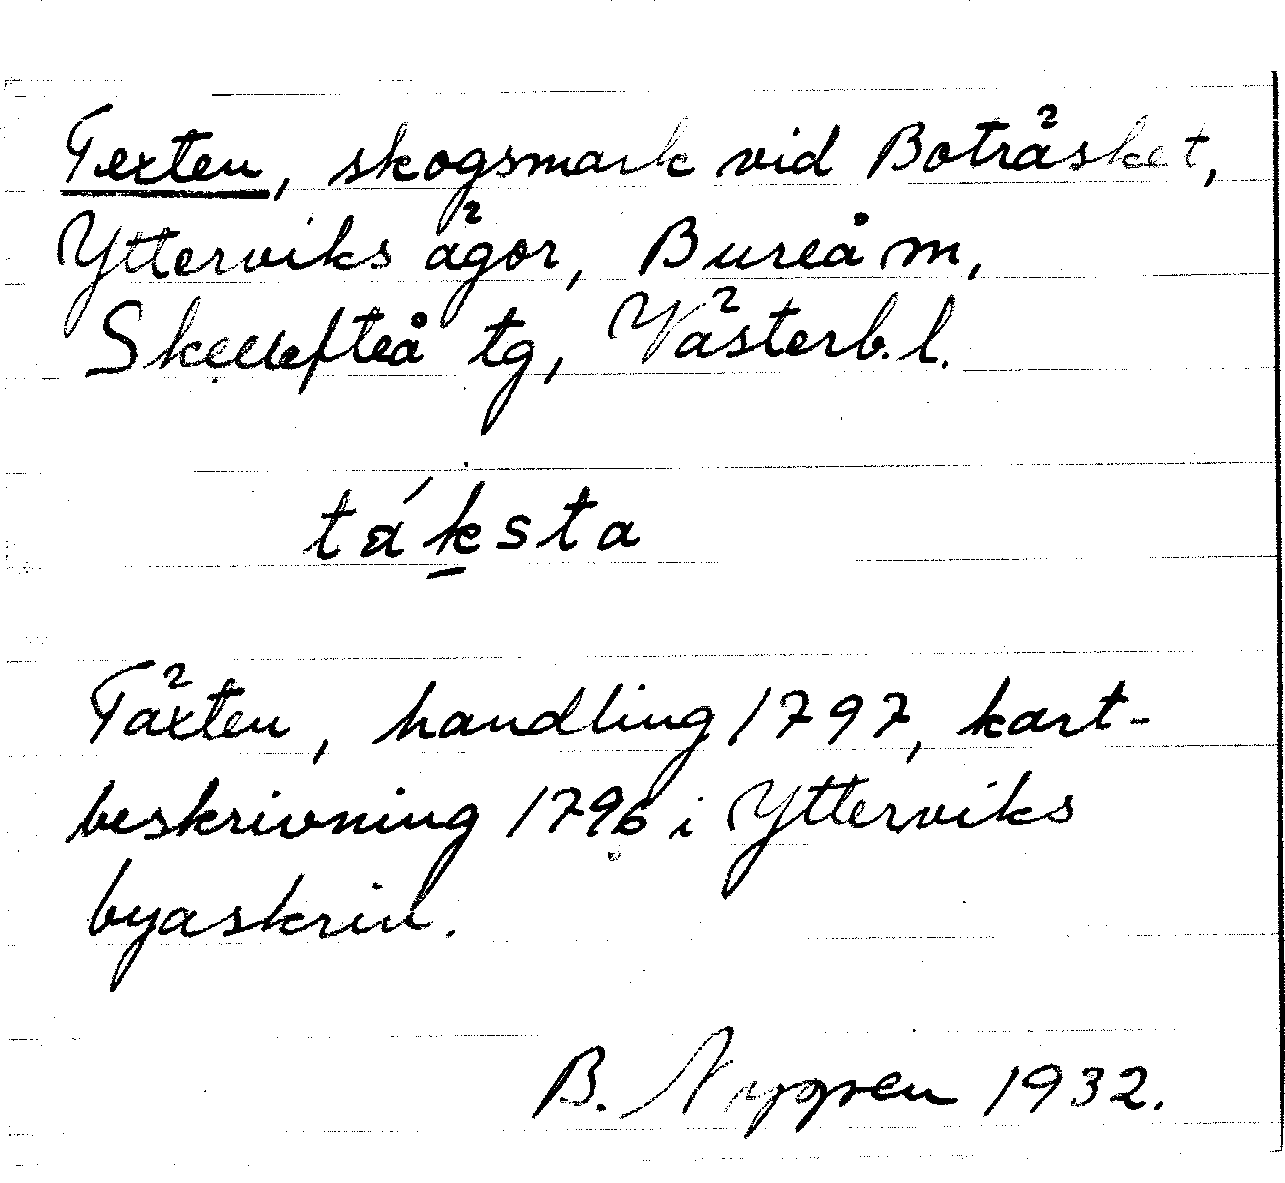 Texten, skogsmark vid Boträsket,
Ytterviks ägor, Bureå m,
Skellefteå tg, Västerb. l.
táksta
Täxten, handling 1797, kart-
beskrivning 1796 i Ytterviks
byaskrin.
B. Nygren 1932.